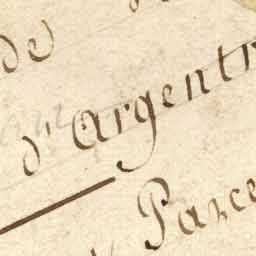 de
d'argentr
Parce